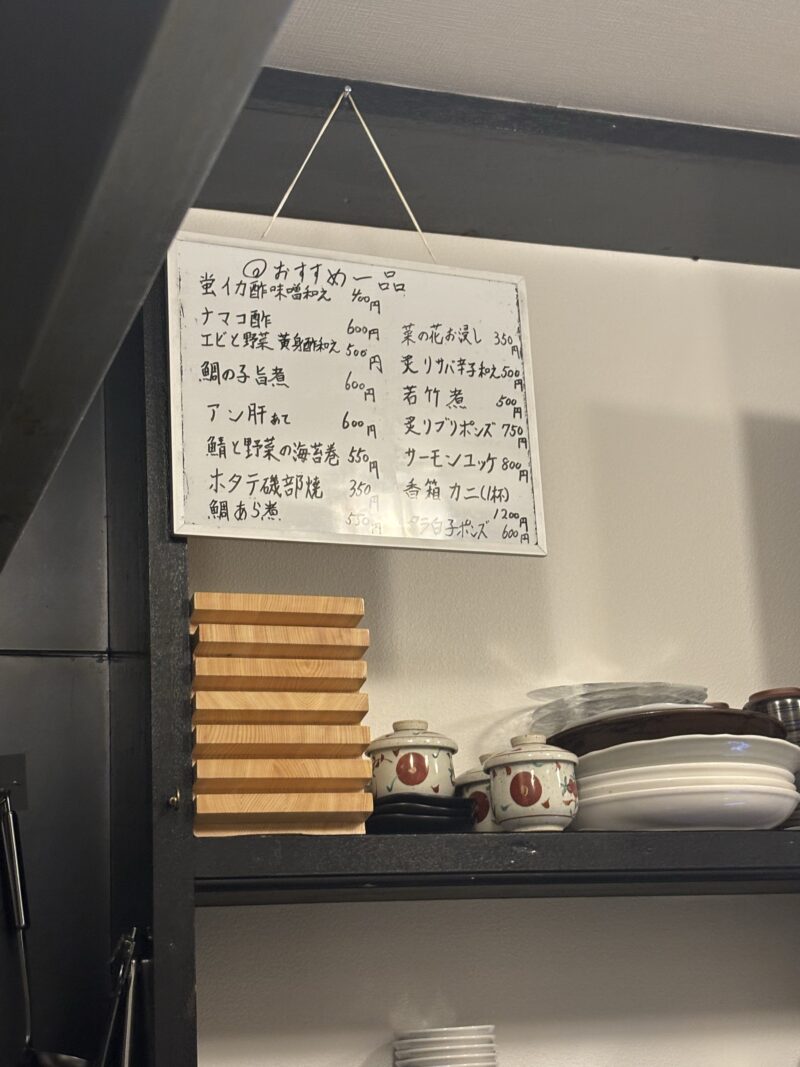 おすすめ一品
蛍イカ酢味噌和え 400円
ナマコ酢 600円
エビと野菜 黄身酢和え 500円
鯛の子旨煮 600円
アン肝あて 600円
鯖と野菜の海苔巻 550円
ホタテ磯部焼 350円
鯛あら煮 550円
菜の花お浸し 350円
炙りサバ辛子和え 500円
若竹煮 500円
炙りブリポンズ 750円
サーモンユッケ 800円
香箱カニ(1杯)
1200円
タラ白子ポンズ 600円